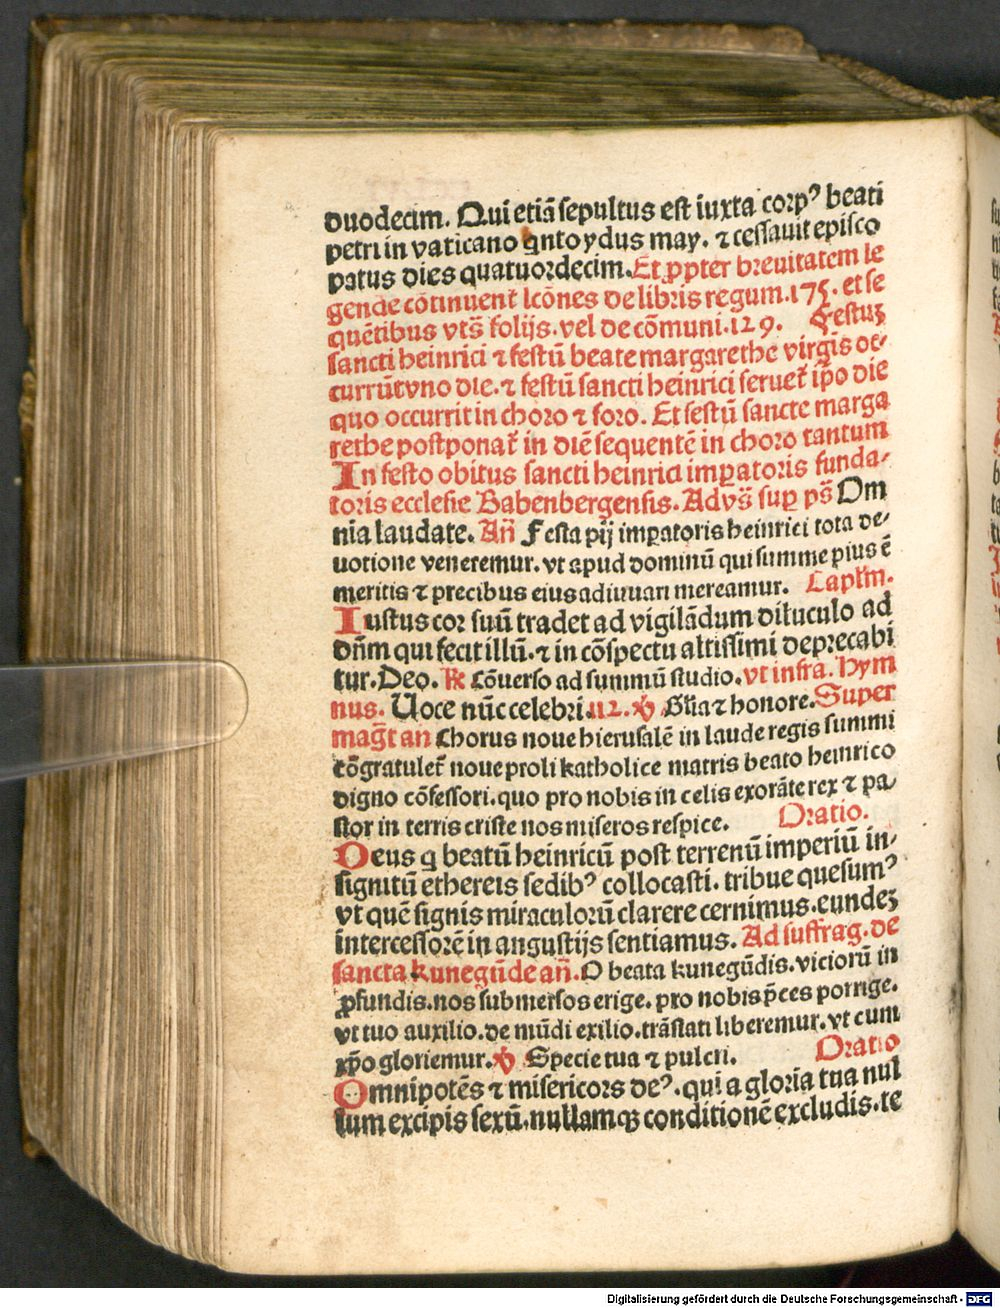 duodecim. Qui etiã sepultus est iuxta corpꝰ beati
petri in vaticano qnto ydus may. ⁊ cessauit episco
patus dies quatuordecim. Et ꝓpter breuitatem le
gende cõtinuent̃ lcõnes de libris regum. 175. et se
quẽtibus vts̃ folijs. vel de cõmuni. 129. Festuꝫ
sancti heinrici ⁊ festũ beate margarethe virgĩs oc⸗
currũt vno die. ⁊ festũ sancti heinrici seruet̃ ip̃o die
quo occurrit in choro ⁊ foro. Et festũ sancte marga
rethe postponat̃ in diẽ sequentẽ in choro tantum
In festo obitus sancti heinrici imꝑatoris funda⸗
toris ecclesie Babenbergensis. Ad vs̃ suꝑ ps̃ Om
nĩa laudate. Añ Festa pij imꝑatoris heinrici tota de⸗
uotione veneremur. vt apud dominũ qui summe pius ẽ
meritis ⁊ precibus eius adiuuari mereamur. Capĩm.
Iustus cor suũ tradet ad vigilãdum diluculo ad
dñm qui fecit illũ. ⁊ in cõspectu altissimi deprecabi
tur. Deo. ℟ Cõuerso ad summũ studio. vt infra. Hym
nus. Uoce nũc celebri. 112. ℣ Gl̃ia ⁊ honore. Super
mag̃t an Chorus noue hierusalẽ in laude regis summi
cõgratulet̃ noue proli katholice matris beato heinrico
digno cõfessori. quo pro nobis in celis exorãte rex ⁊ pa⸗
stor in terris criste nos miseros respice. Oratio.
Deus q beatũ heinricũ post terrenũ imperiũ in⸗
signitũ ethereis sedibꝰ collocasti. tribue quesumꝰ
vt quẽ signis miraculorũ clarere cernimus. eundeꝫ
intercessorẽ in angustijs sentiamus. Ad suffrag. de
sancta kunegũde añ. O beata kunegũdis. viciorũ in
ꝓfundis. nos submersos erige. pro nobis p̃ces porrige.
vt tuo auxilio. de mũdi exilio. trãslati liberemur. vt cum
xp̃o gloriemur. ℣ Specie tua ⁊ pulcri. Oratio
Omnipotẽs ⁊ misericors deꝰ. qui a gloria tua nul
lum excipis sexũ. nullamqꝫ conditionẽ excludis. te
Digitalisierung gefördert durch die Deutsche Forschungsgemeinschaft - DFG